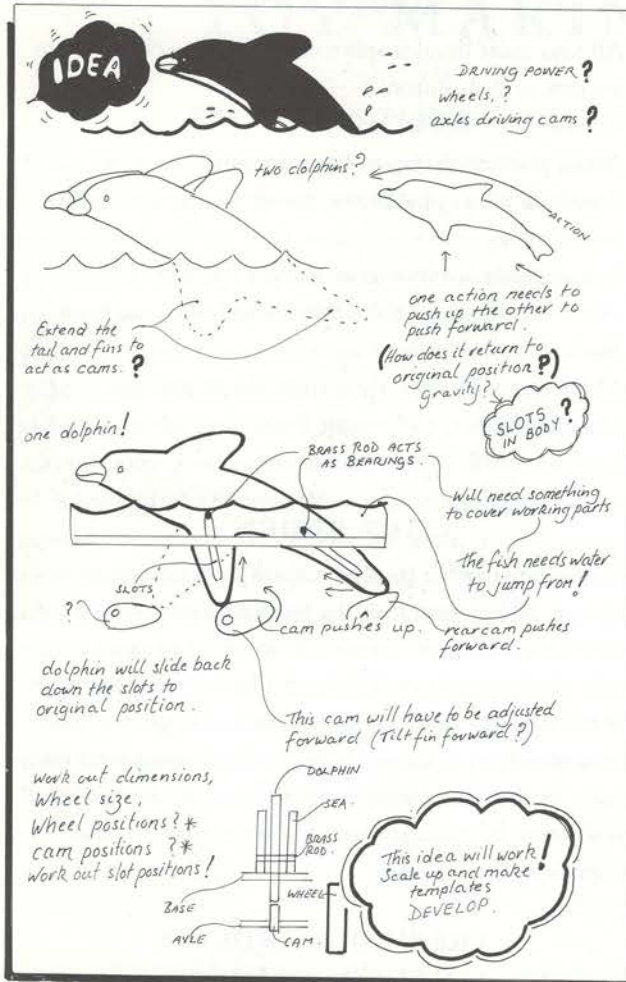 IDEA
DRIVING POWER?
wheels,?
axles driving cams?
two dolphins?
ACTION
one action needs to
push up the other to
push forward.
(How does it return to
original position?)
gravity?
Extend the
tail and fins to
act as cams.?
SLOTS?
IN BODY
one dolphin!
BRASS ROD ACTS
AS BEARINGS.
Will need something
to cover working parts
The fish needs water
to jump from!
SLOTS
?
cam pushes up.
rear cam pushes
forward.
dolphin will slide back
down the slots to
original position.
This cam will have to be adjusted
forward (Tilt fin forward?)
work out dimensions,
Wheel size,
Wheel positions?*
cam positions ?*
work out slot positions!
DOLPHIN
SEA.
BRASS
ROD.
BASE
WHEEL
AXLE
CAM.
This idea will work!
Scale up and make
templates
DEVELOP.